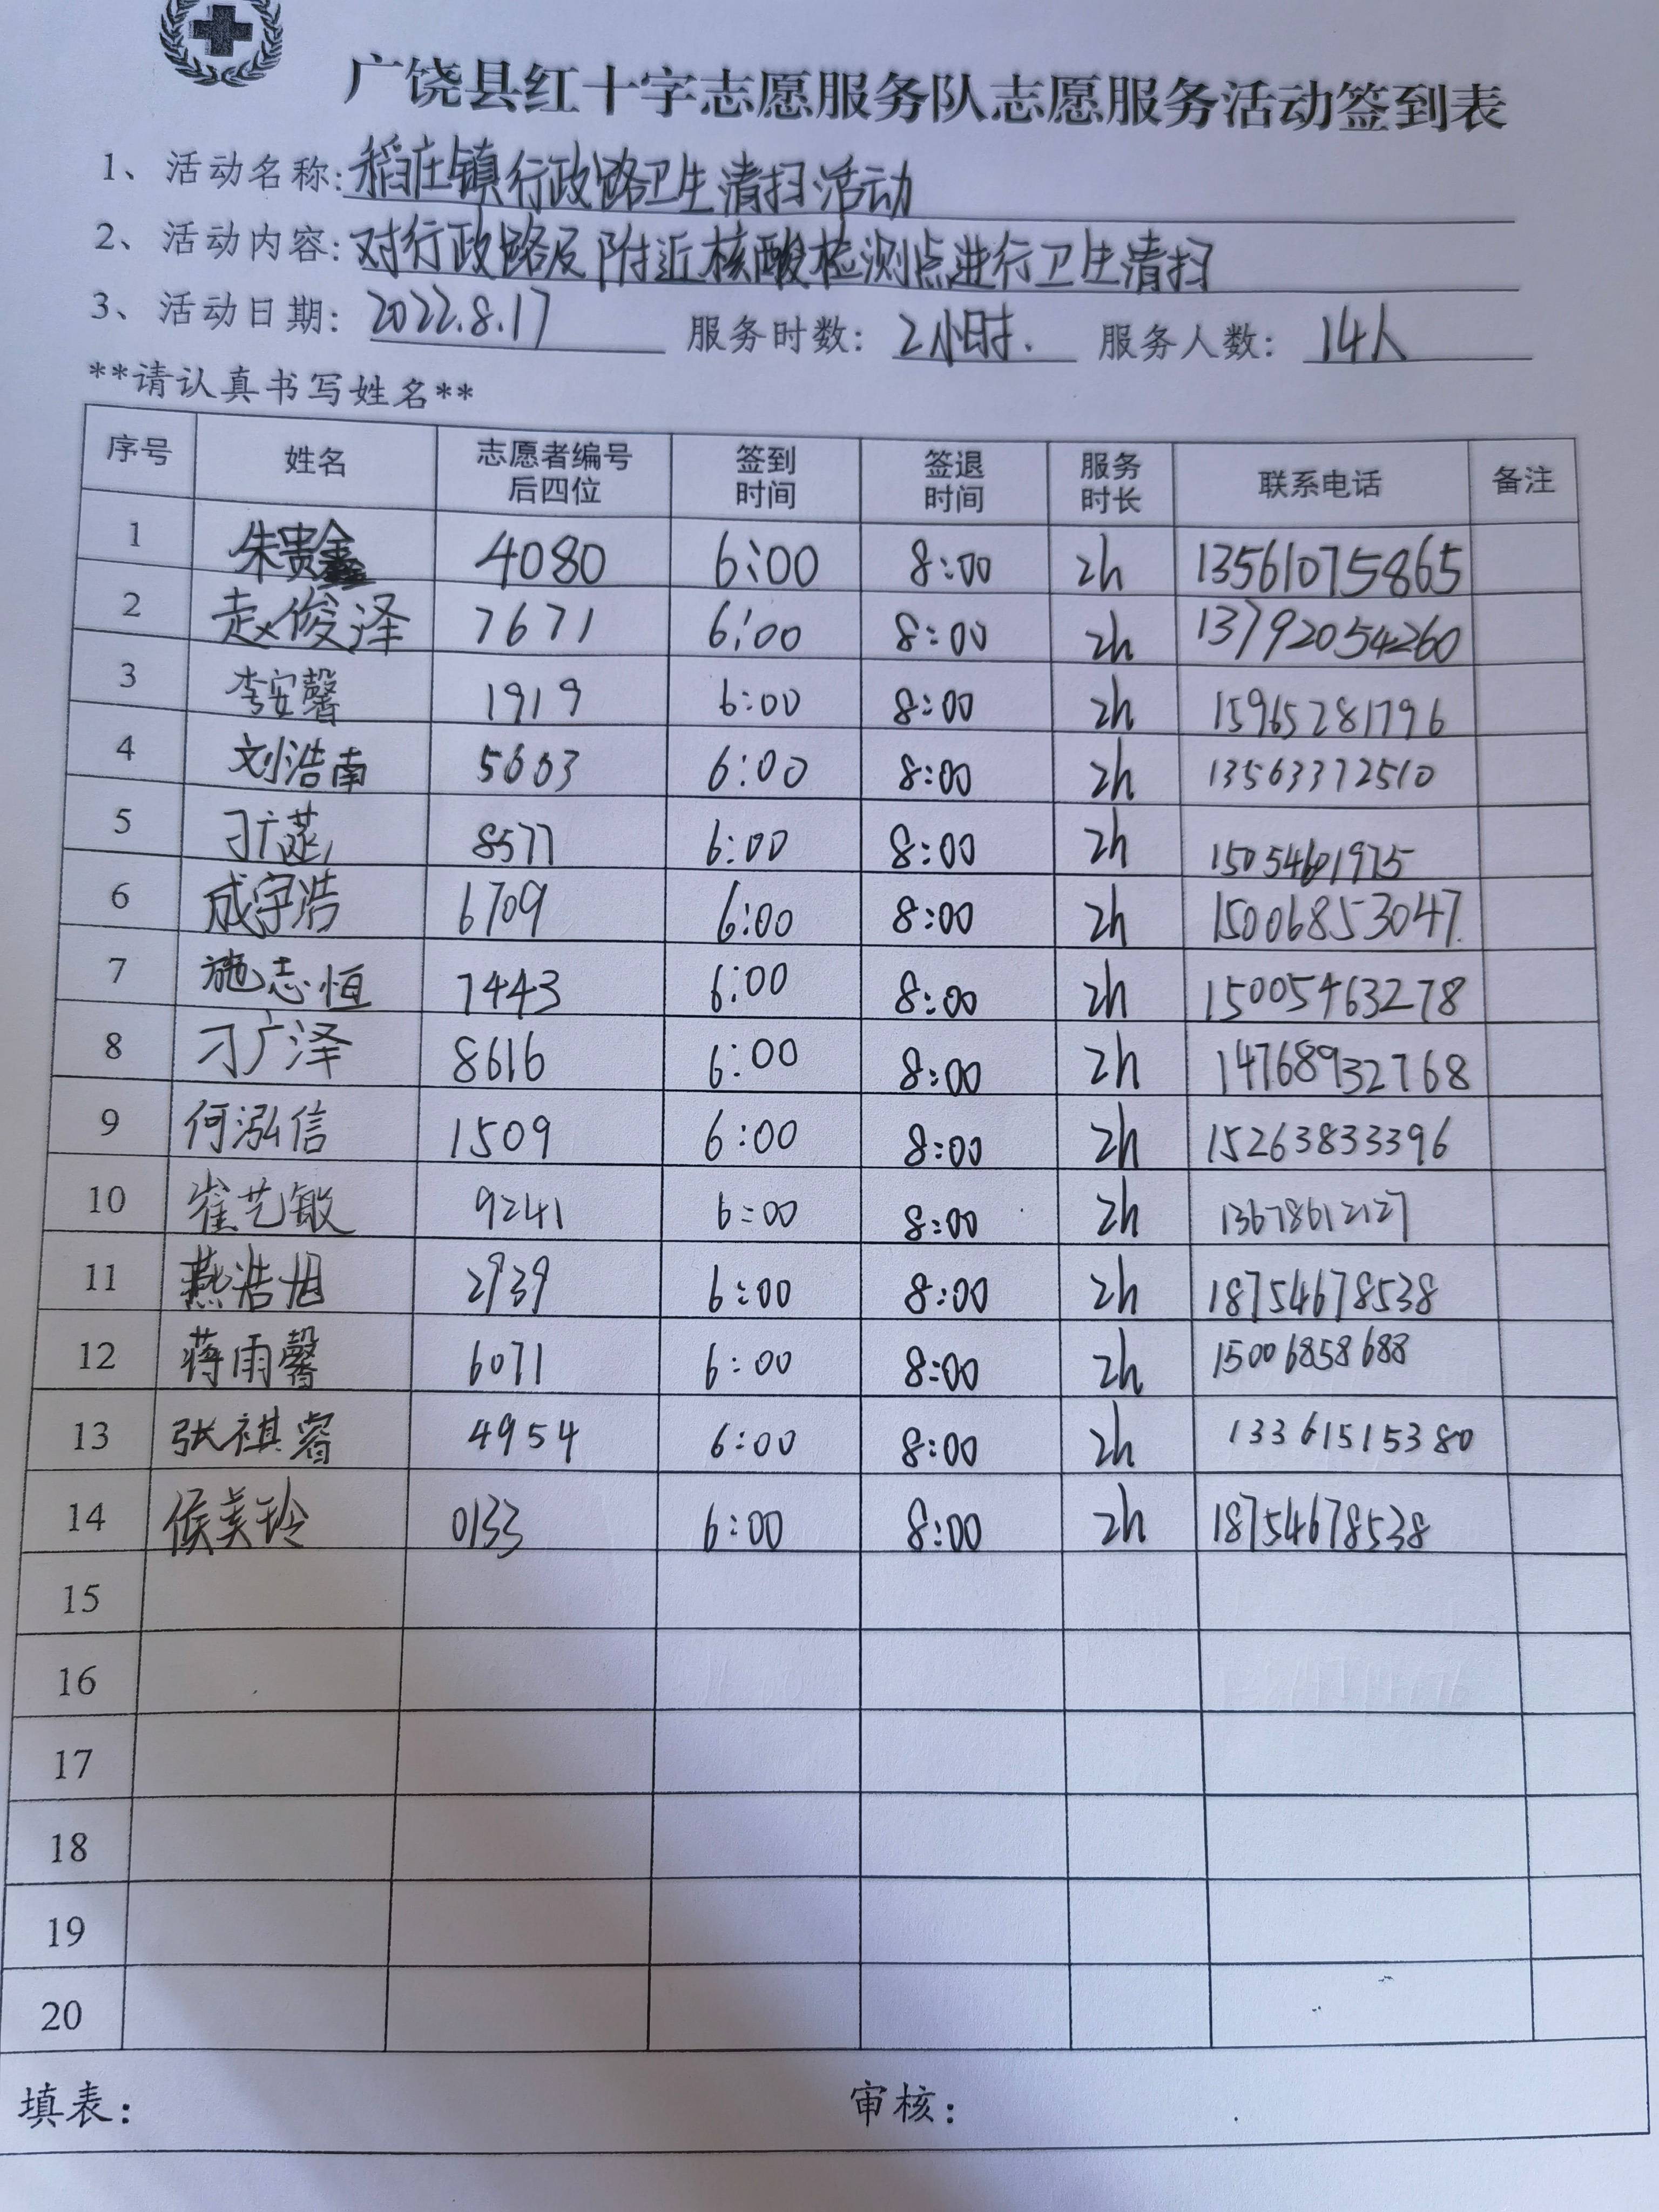 广饶县红十字志愿服务队志愿服务活动签到表
1、活动名称:稻庄镇行政路卫生清扫活动
2、活动内容:对行政路及附近核酸检测点进行卫生清扫
3、活动日期: 2022.8.17 服务时数: 2小时. 服务人数: 14人
**请认真书写姓名**
序号 姓名 志愿者编号后四位 签到时间 签退时间 服务时长 联系电话 备注
1 朱贵鑫 4080 6:00 8:00 2h 13561075865
2 赵俊泽 7671 6:00 8:00 2h 13792054260
3 李安馨 1919 6:00 8:00 2h 15965281796
4 刘浩南 5603 6:00 8:00 2h 13563372510
5 刁广 8577 6:00 8:00 2h 15054601975
6 成宇浩 6709 6:00 8:00 2h 15006853047.
7 施志恒 7443 6:00 8:00 2h 15005463278
8 刁广泽 8616 6:00 8:00 2h 14768932768
9 何泓信 1509 6:00 8:00 2h 15263833396
10 崔艺敏 9241 6:00 8:00 2h 13678612127
11 燕浩旭 2939 6:00 8:00 2h 18754678538
12 蒋雨馨 6071 6:00 8:00 2h 15006858688
13 张祺睿 4954 6:00 8:00 2h 13361515380
14 侯美玲 0133 6:00 8:00 2h 18754678538
15
16
17
18
19
20
填表: 审核: